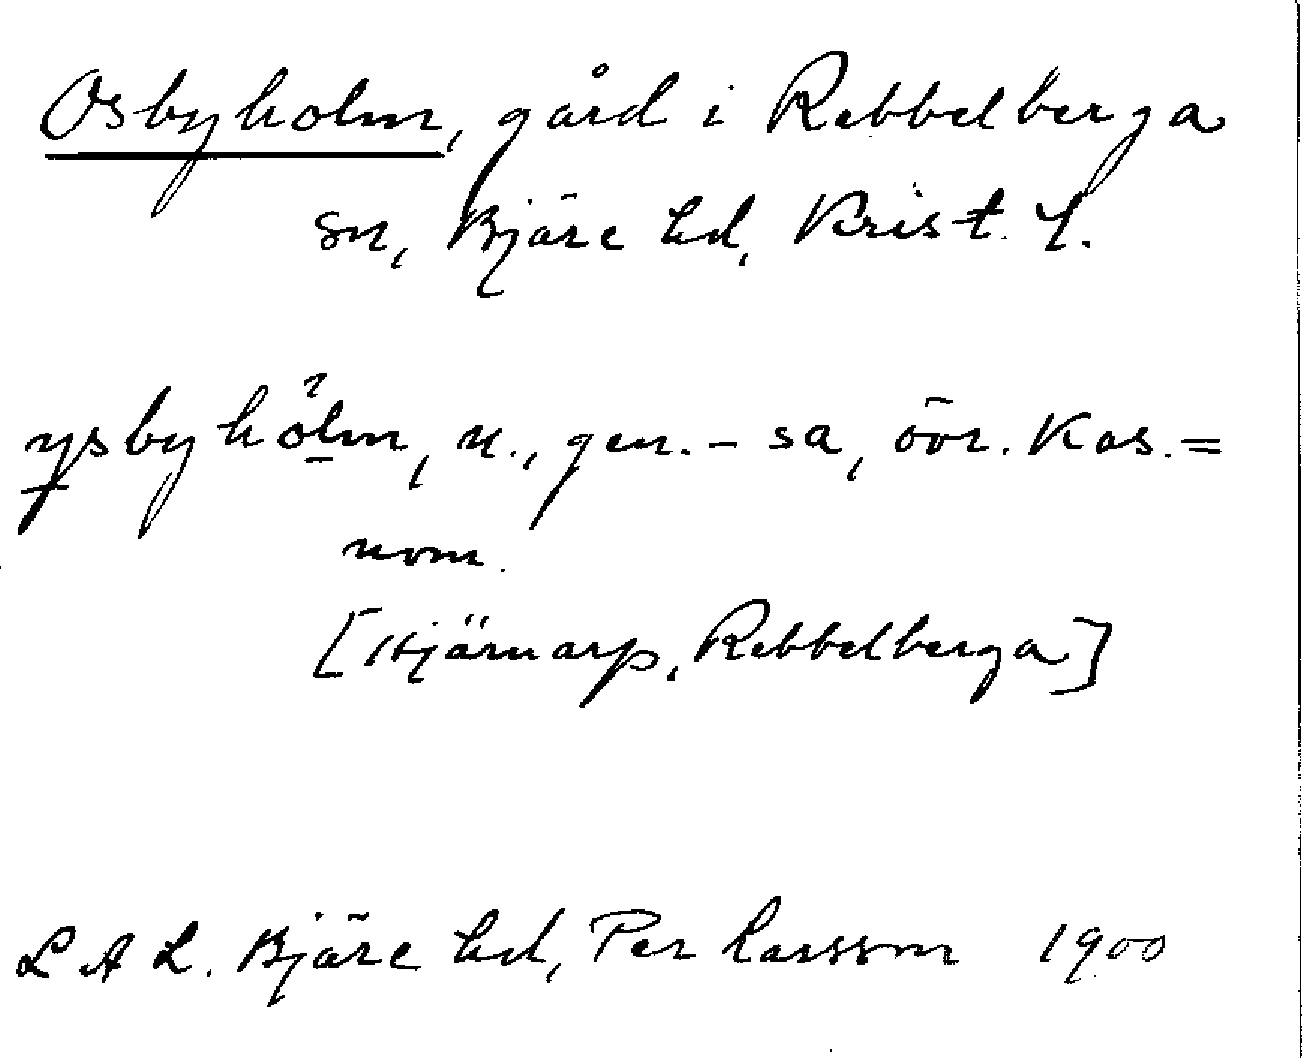 Osbyholm, gård i Rebbelberga
sn, Bjäre hd, Krist. L.
ysbyhölm, n., gen. - sa, övr. Kas. =
nom.
[Hjärnarp, Rebbelberga]
LAL. Bjäre hd, Per Larsson 1900